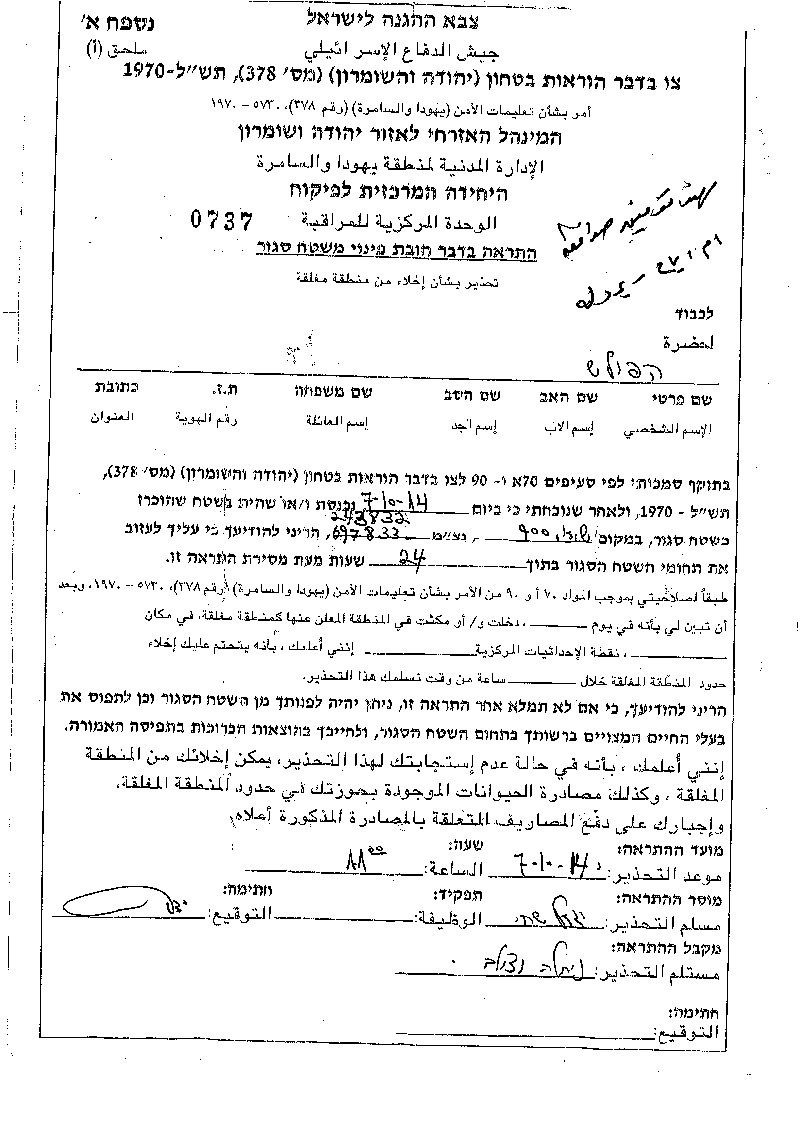 צבא ההגנה לישראל
נספח א'
جيش الدفاع الإسرائيلي
ملحق (أ)
צו בדבר הוראות בטחון (יהודה והשומרון) (מס' 378), תש"ל-1970
أمر بشأن تعليمات الأمن (يهودا والسامرة) (رقم ٣٧٨)، ٥٧٣٠ - ١٩٧٠
המינהל האזרחי לאזור יהודה ושומרון
الإدارة المدنية لمنطقة يهودا والسامرة
היחידה המרכזית לפיקוח
الوحدة المركزية للمراقبة
0737
התראה בדבר חובת פינוי משטח סגור
تحذير بشأن إخلاء من منطقة مغلقة
לכבוד
لحضرة
הפולש
שם פרטי שם האב שם הסב שם משפחה ת.ז. כתובת
الإسم الشخصي إسم الاب إسم الجد إسم العائلة رقم الهوية العنوان
בתוקף סמכותי לפי סעיפים 70א ו- 90 לצו בדבר הוראות בטחון (יהודה והשומרון) (מס' 378),
תש"ל - 1970, ולאחר שנוכחתי כי ביום 7-10-14 נכנסת ו/או שהית בשטח שהוכרז
243832
כשטח סגור, במקום 900, נ.צ.מ 697833, הריני להודיעך כי עליך לעזוב
את תחומי השטח הסגור בתוך 24 שעות מעת מסירת התראה זו.
طبقاً لصلاحيتي بموجب المواد ٧٠ أو ٩٠ من الأمر بشأن تعليمات الأمن (يهودا والسامرة) (رقم ٣٧٨)، ٥٧٣٠ - ١٩٧٠، وبعد
أن تبين لي بأنه في يوم ، دخلت و/ أو مكثت في المنطقة المعلن عنها كمنطقة مغلقة، في مكان
، نقطة الإحداثيات المركزية إنني أعلمك ، بأنه يتحتم عليك إخلاء
حدود المنطقة المغلقة خلال ساعة من وقت تسلمك هذا التحذير.
הריני להודיעך, כי אם לא תמלא אחר התראה זו, ניתן יהיה לפנותך מן השטח הסגור וכן לתפוס את
בעלי החיים המצויים ברשותך בתחום השטח הסגור, ולחייבך בהוצאות הכרוכות בתפיסה האמורה.
إنني أعلمك ، بأنه في حالة عدم إستجابتك لهذا التحذير، يمكن إخلائك من المنطقة
المغلقة ، وكذلك مصادرة الحيوانات الموجودة بحوزتك في حدود المنطقة المغلقة.
وإجبارك على دفع المصاريف المتعلقة بالمصادرة المذكورة أعلاه.
מועד ההתראה: שעה:
موعد التحذير: 7-10-14 الساعة: 11:00
מוסר ההתראה: תפקיד: חתימה:
مسلم التحذير: الوظيفة: التوقيع:
מקבל ההתראה:
مستلم التحذير:
חתימה:
التوقيع: